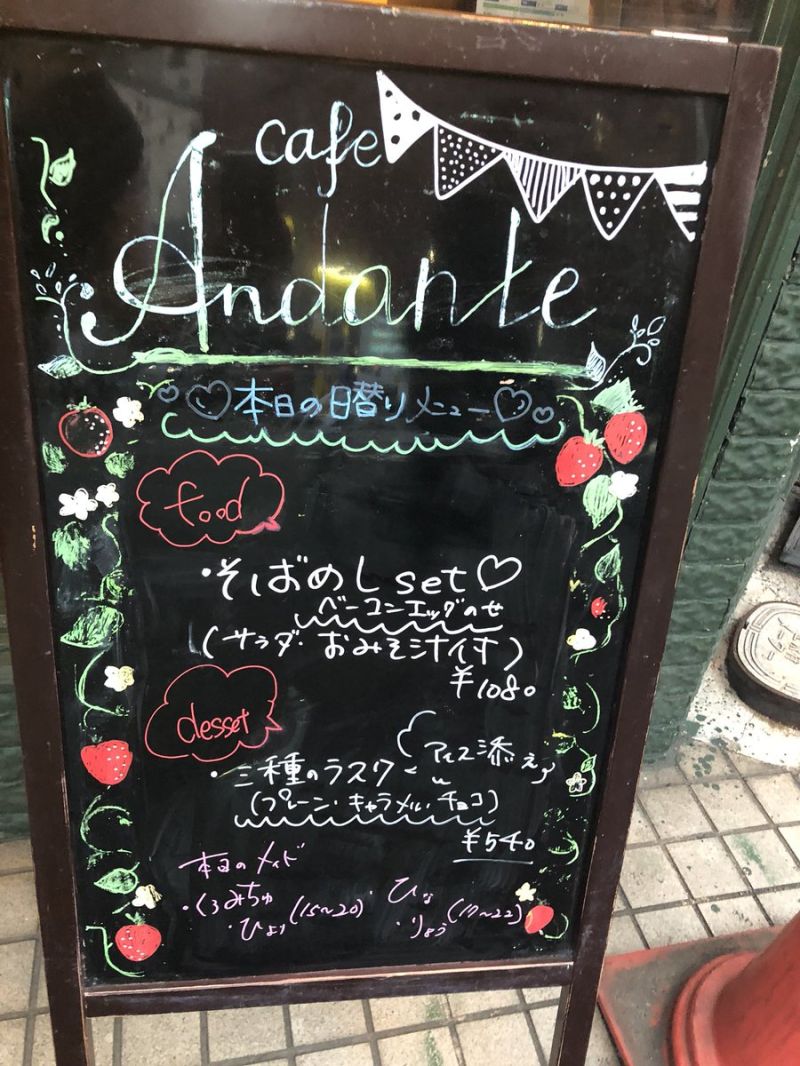 cafe
Andante
本日の日替りメニュー
food
・そばめしset♡
ベーコンエッグのせ
(サラダ・おみそ汁付)
¥1080
desset
アイス添え
・三種のラスク
(プレーン・キャラメル・チョコ)
¥540
本日のメイド
・くるみちゅ
・ひより
(15~20)
・ひな
・りょう
(17~22)